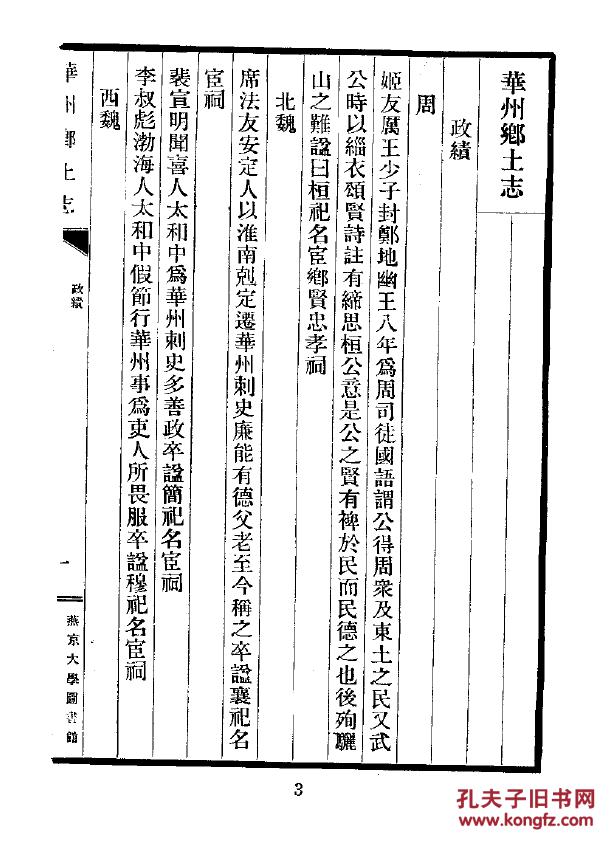 華州鄉土志
政績
周
姬友厲王少子封鄭地幽王八年爲周司徒國語謂公得周衆及東土之民又武
公時以緇衣頌賢詩註有緖思桓公意是公之賢有裨於民而民德之也後殉驪
山之難諡曰桓祀名宦鄉賢忠孝祠
北魏
席法友安定人以淮南剋定遷華州刺史廉能有德父老至今稱之卒諡襄祀名
宦祠
裴宣明聞喜人太和中爲華州刺史多善政卒諡簡祀名宦祠
李叔彪渤海人太和中假節行華州事爲吏人所畏服卒諡穆祀名宦祠
西魏
華州鄉土志
政績
一
燕京大學圖書館
3
孔夫子旧书网
www.kongfz.com